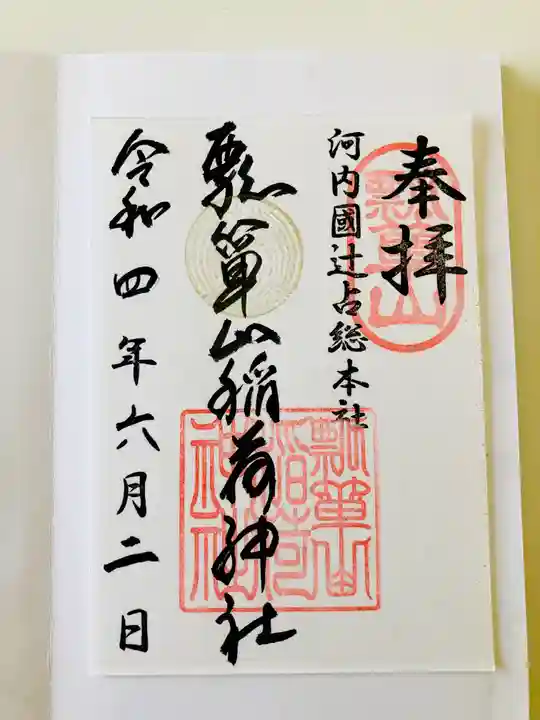 奉拝
河内國辻占総本社
瓢箪山
瓢箪山稲荷神社
瓢箪山稲荷神社
令和四年六月二日